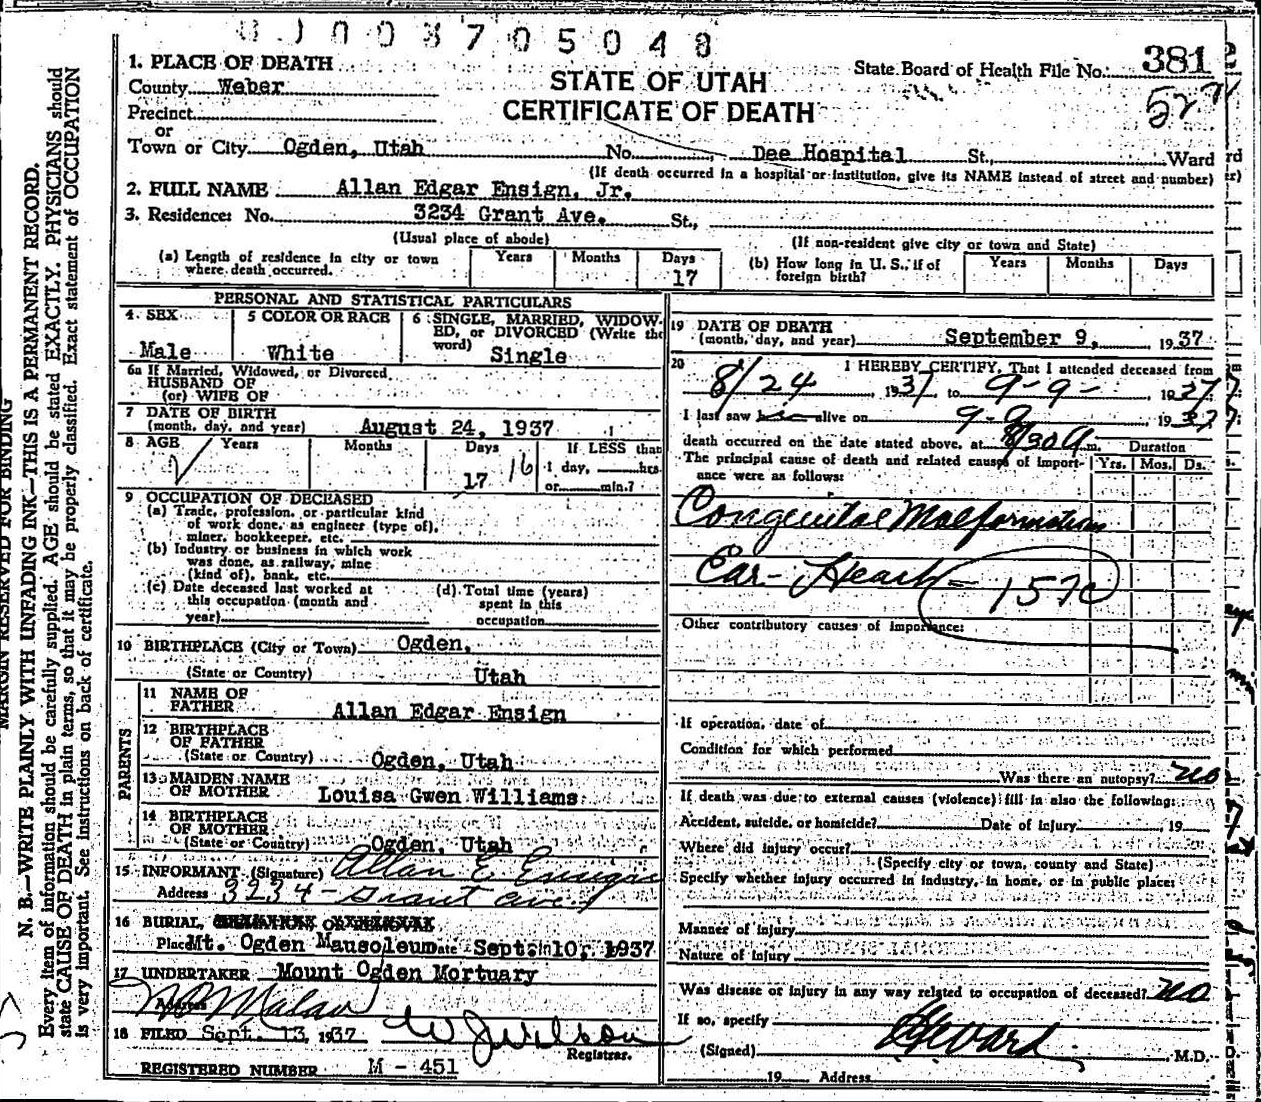 0 3 7 0 5 0 4 8
1. PLACE OF DEATH
County Weber
Precinct
or
Town or City Ogden, Utah No. Dee Hospital St., Ward
STATE OF UTAH
CERTIFICATE OF DEATH
State Board of Health File No. 381
(If death occurred in a hospital or institution, give its NAME instead of street and number)
2. FULL NAME Allan Edgar Ensign, Jr.
3. Residence: No. 3234 Grant Ave. St.,
(Usual place of abode) (If non-resident give city or town and State)
(a) Length of residence in city or town where death occurred. Years Months Days 17
(b) How long in U. S., if of foreign birth? Years Months Days
PERSONAL AND STATISTICAL PARTICULARS
4 SEX Male
5 COLOR OR RACE White
6 SINGLE, MARRIED, WIDOWED, or DIVORCED (Write the word) Single
6a If Married, Widowed, or Divorced
HUSBAND OF
(or) WIFE OF
7 DATE OF BIRTH
(month, day, and year) August 24, 1937
8 AGE Years Months Days If LESS than
17 16 1 day, hrs.
or min.?
9 OCCUPATION OF DECEASED
(a) Trade, profession, or particular kind
of work done, as engineer (type of),
miner, bookkeeper, etc.
(b) Industry or business in which work
was done, as railway, mine
(kind of), bank, etc.
(c) Date deceased last worked at
this occupation (month and
year)
(d) Total time (years)
spent in this
occupation
10 BIRTHPLACE (City or Town) Ogden,
(State or Country) Utah
PARENTS
11 NAME OF
FATHER Allan Edgar Ensign
12 BIRTHPLACE
OF FATHER
(State or Country) Ogden, Utah
13 MAIDEN NAME
OF MOTHER Louisa Gwen Williams
14 BIRTHPLACE
OF MOTHER
(State or Country) Ogden, Utah
15 INFORMANT (Signature) Allan E Ensign
Address 3234 - Grant Ave.
16 BURIAL,
Place Mt. Ogden Mausoleum Date Sept. 10, 1937
17 UNDERTAKER Mount Ogden Mortuary
Address
18 FILED Sept. 13, 1937 W J Wilson
Registrar.
REGISTERED NUMBER M - 451
19 DATE OF DEATH
(month, day, and year) September 9, 1937
20 I HEREBY CERTIFY, That I attended deceased from
8/24 1937 to 9-9- 1937
I last saw alive on 9-9 1937
death occurred on the date stated above, at 8/30 A m. Duration
The principal cause of death and related causes of importance were as follows: Yrs. Mos. Ds.
Congenital Malformation
Car- Heart - 157c
Other contributory causes of importance:
If operation, date of
Condition for which performed
Was there an autopsy? no
If death was due to external causes (violence) fill in also the following:
Accident, suicide, or homicide? Date of injury , 19
Where did injury occur?
(Specify city or town, county and State)
Specify whether injury occurred in industry, in home, or in public place:
Manner of injury
Nature of injury
Was disease or injury in any way related to occupation of deceased? no
If so, specify
(Signed) M.D.
19 Address
MARGIN RESERVED FOR BINDING
N. B.—WRITE PLAINLY WITH UNFADING INK—THIS IS A PERMANENT RECORD.
Every item of information should be carefully supplied. AGE should be stated EXACTLY. PHYSICIANS should
state CAUSE OF DEATH in plain terms, so that it may be properly classified. Exact statement of OCCUPATION
is very important. See instructions on back of certificate.